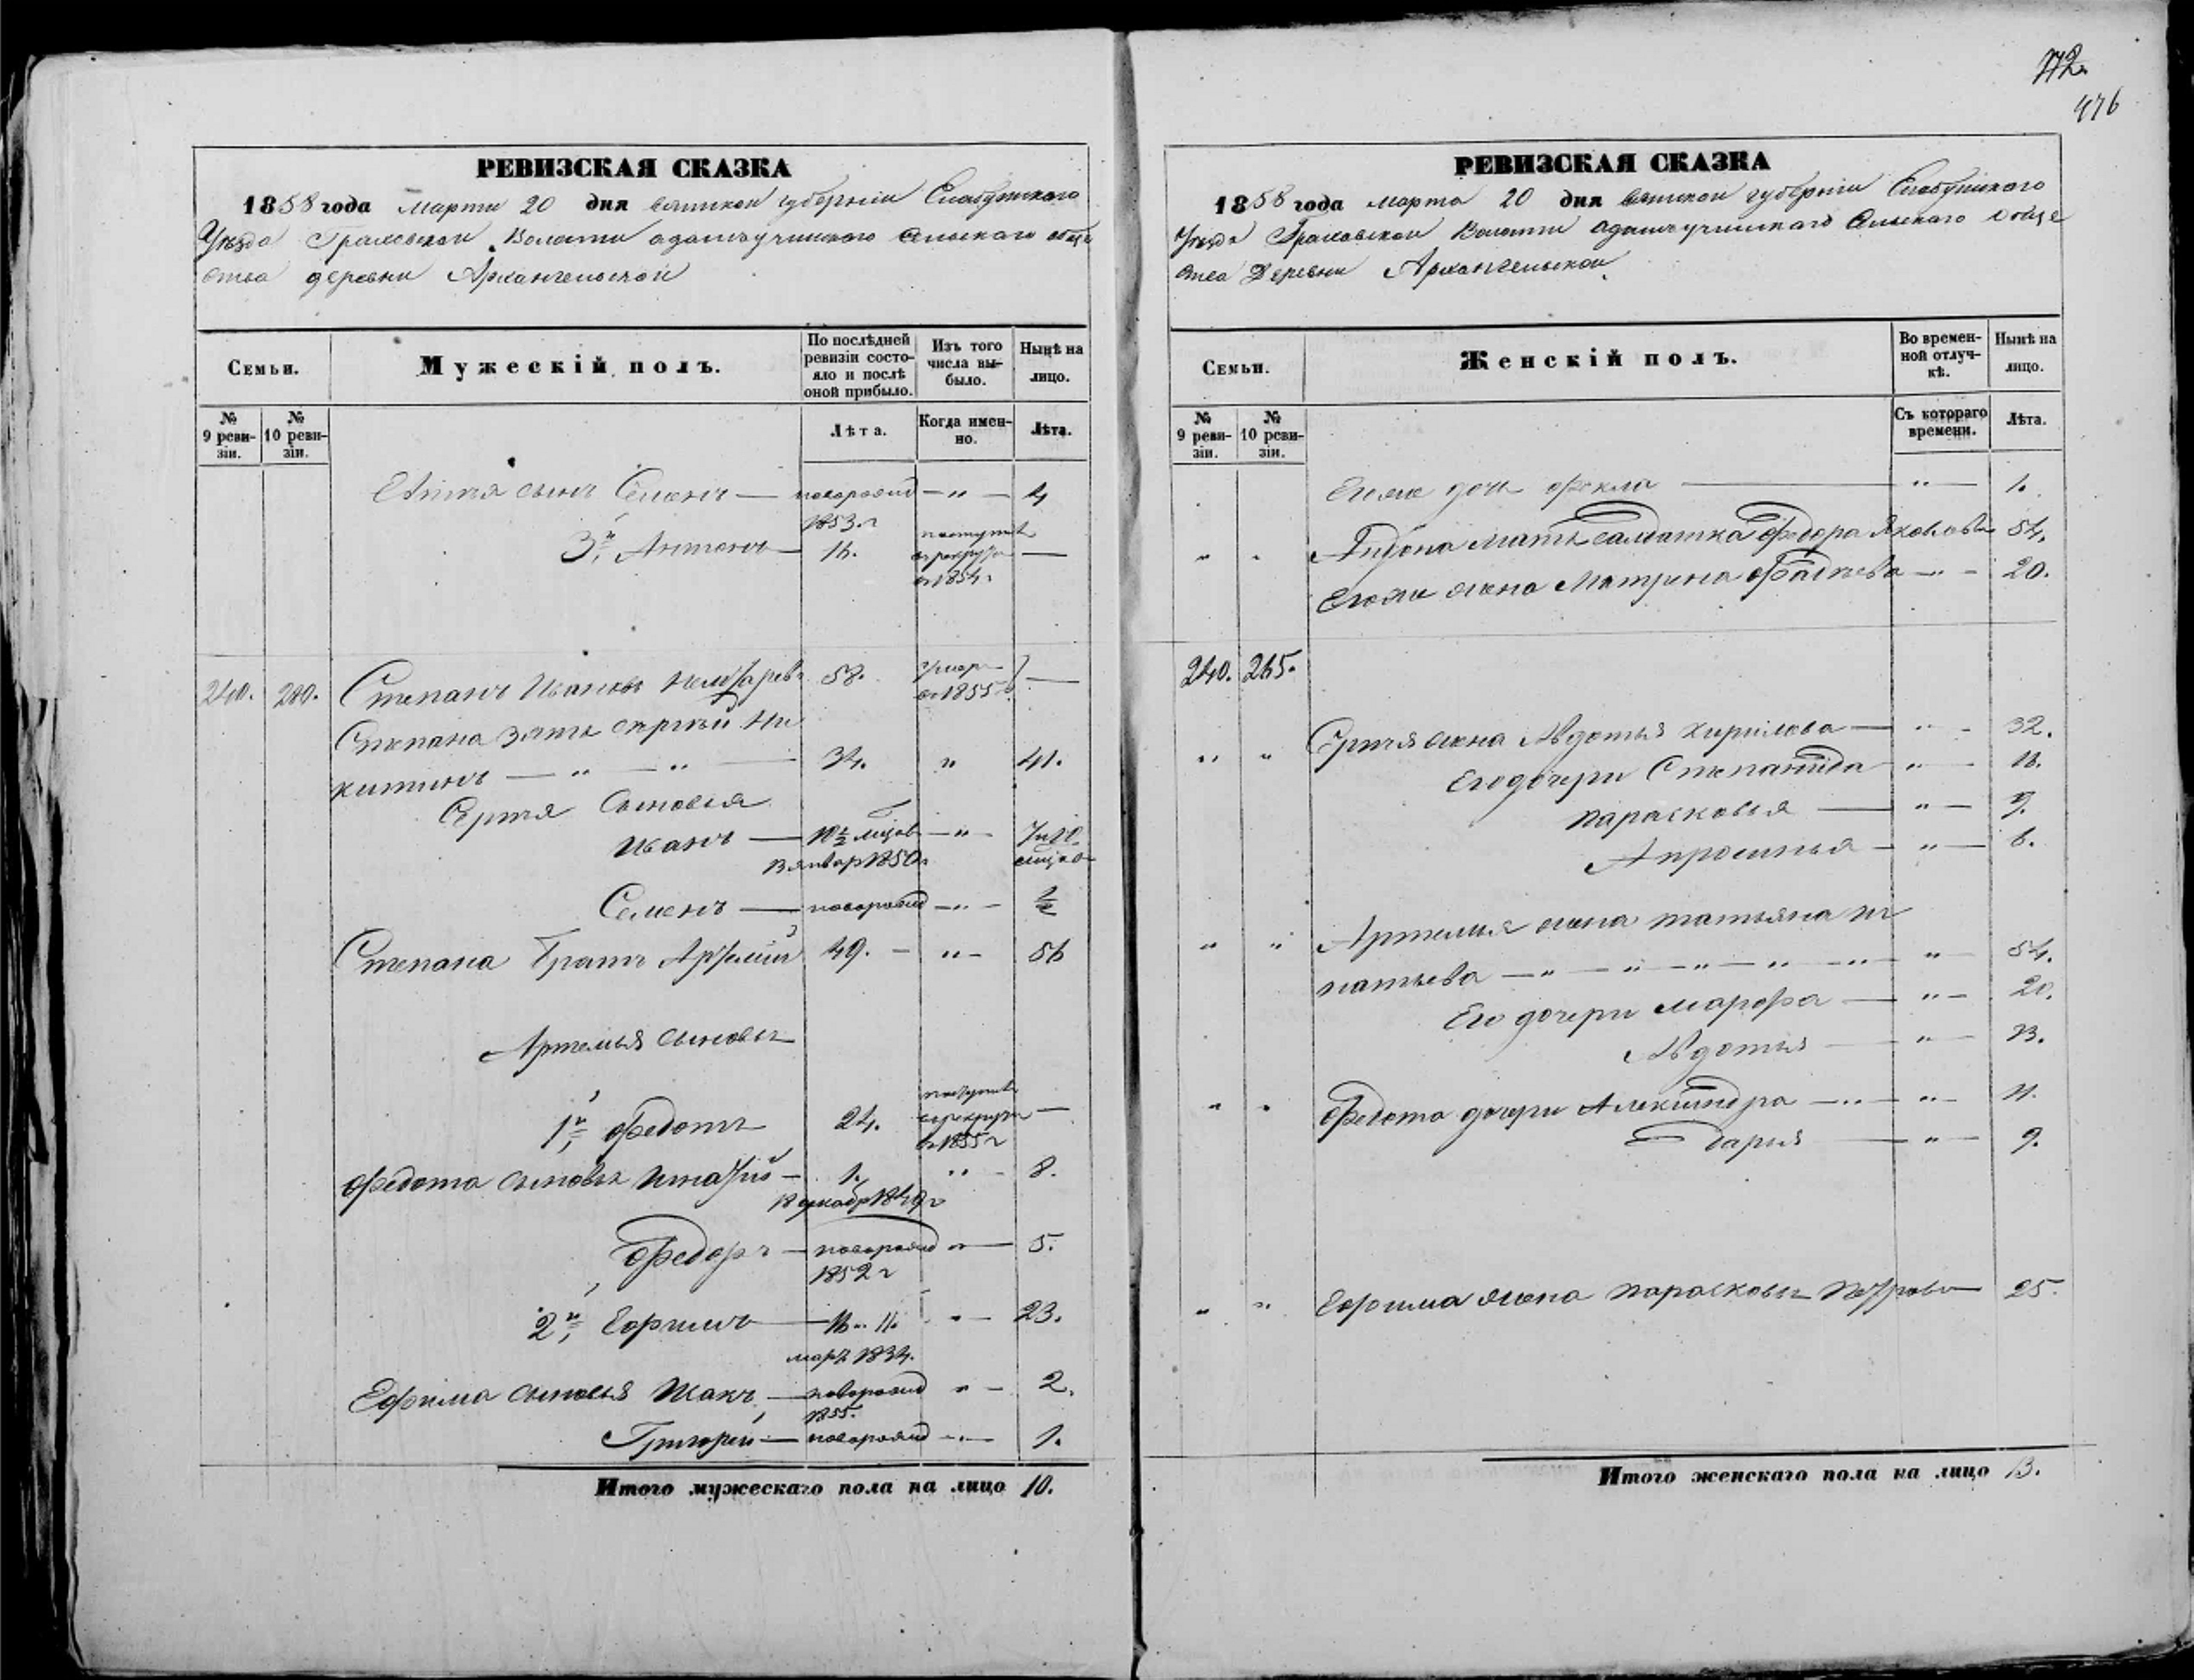 772.
476
РЕВИЗСКАЯ СКАЗКА
1858 года Марта 20 дня Вятской губернiи Елабужского
Уѣзда Граховской Волости сельского обще
ства деревни Архангельской
Семьи.
Мужескiй полъ.
По послѣдней ревизiи состояло и послѣ оной прибыло.
Изъ того числа выбыло.
Нынѣ на лицо.
№ 9 ревизiи.
№ 10 ревизiи.
Лѣта.
Когда именно.
Лѣта.
сынъ Семенъ — новорожд — „ — 4
1853 г
3й, Антонъ — 16. поступилъ в рекруты в 1854 г —
240. 280. Степанъ Ивановъ 58. умеръ в 1855 —
Степана зять Сергѣй Ни
китинъ — „ — „ — 34. „ 41.
Сергѣя Сыновья
Иванъ — 10½ мѣсяцов — „ —
13 январ 1850 г
Семенъ — новорожд — „ — ½
Степана Братъ Артемiй 49. — „ — 56
Артемья сыновья
1й, Федотъ 24. поступилъ в рекруты в 1855 г —
Федота сыновья Игнатiй — 1. „ — 8.
18 декабр 1849 г
Федоръ — новорожд „ — 5.
1852 г
2й, Ефимъ — 16. 11. „ — 23.
март 1834.
Ефима сыновья — новорожд „ — 2.
1855.
Григорей — новорожд — „ — 1.
Итого мужескаго пола на лицо 10.
РЕВИЗСКАЯ СКАЗКА
1858 года марта 20 дня Вятской губернiи Елабужского
Уѣзда Граховской Волости сельского обще
ства Деревни Архангельской
Семьи.
Женскiй полъ.
Во временной отлучкѣ.
Нынѣ на лицо.
№ 9 ревизiи.
№ 10 ревизiи.
Съ котораго времени.
Лѣта.
дочь Фекла — „ — 1.
„ „ мать Салдатка Федора Яковлева 54.
Егоже жена Матрена — „ — 20.
240. 265.
„ „ Сергѣя жена Авдотья Кирилова — „ — 32.
Его дочери Степанида „ — 16.
Парасковья — „ — 9.
Апросинья — „ — 6.
„ „ Артемья жена Татьяна Иг
натьева — „ — „ — „ — „ — „ — „ 54.
Его дочери Марфа — „ — 20.
Авдотья — „ — 13.
„ „ Федота дочери Александра — „ — „ — 11.
Дарья — „ — 9.
„ „ Ефима жена Парасковья Петрова — 25.
Итого женскаго пола на лицо 13.